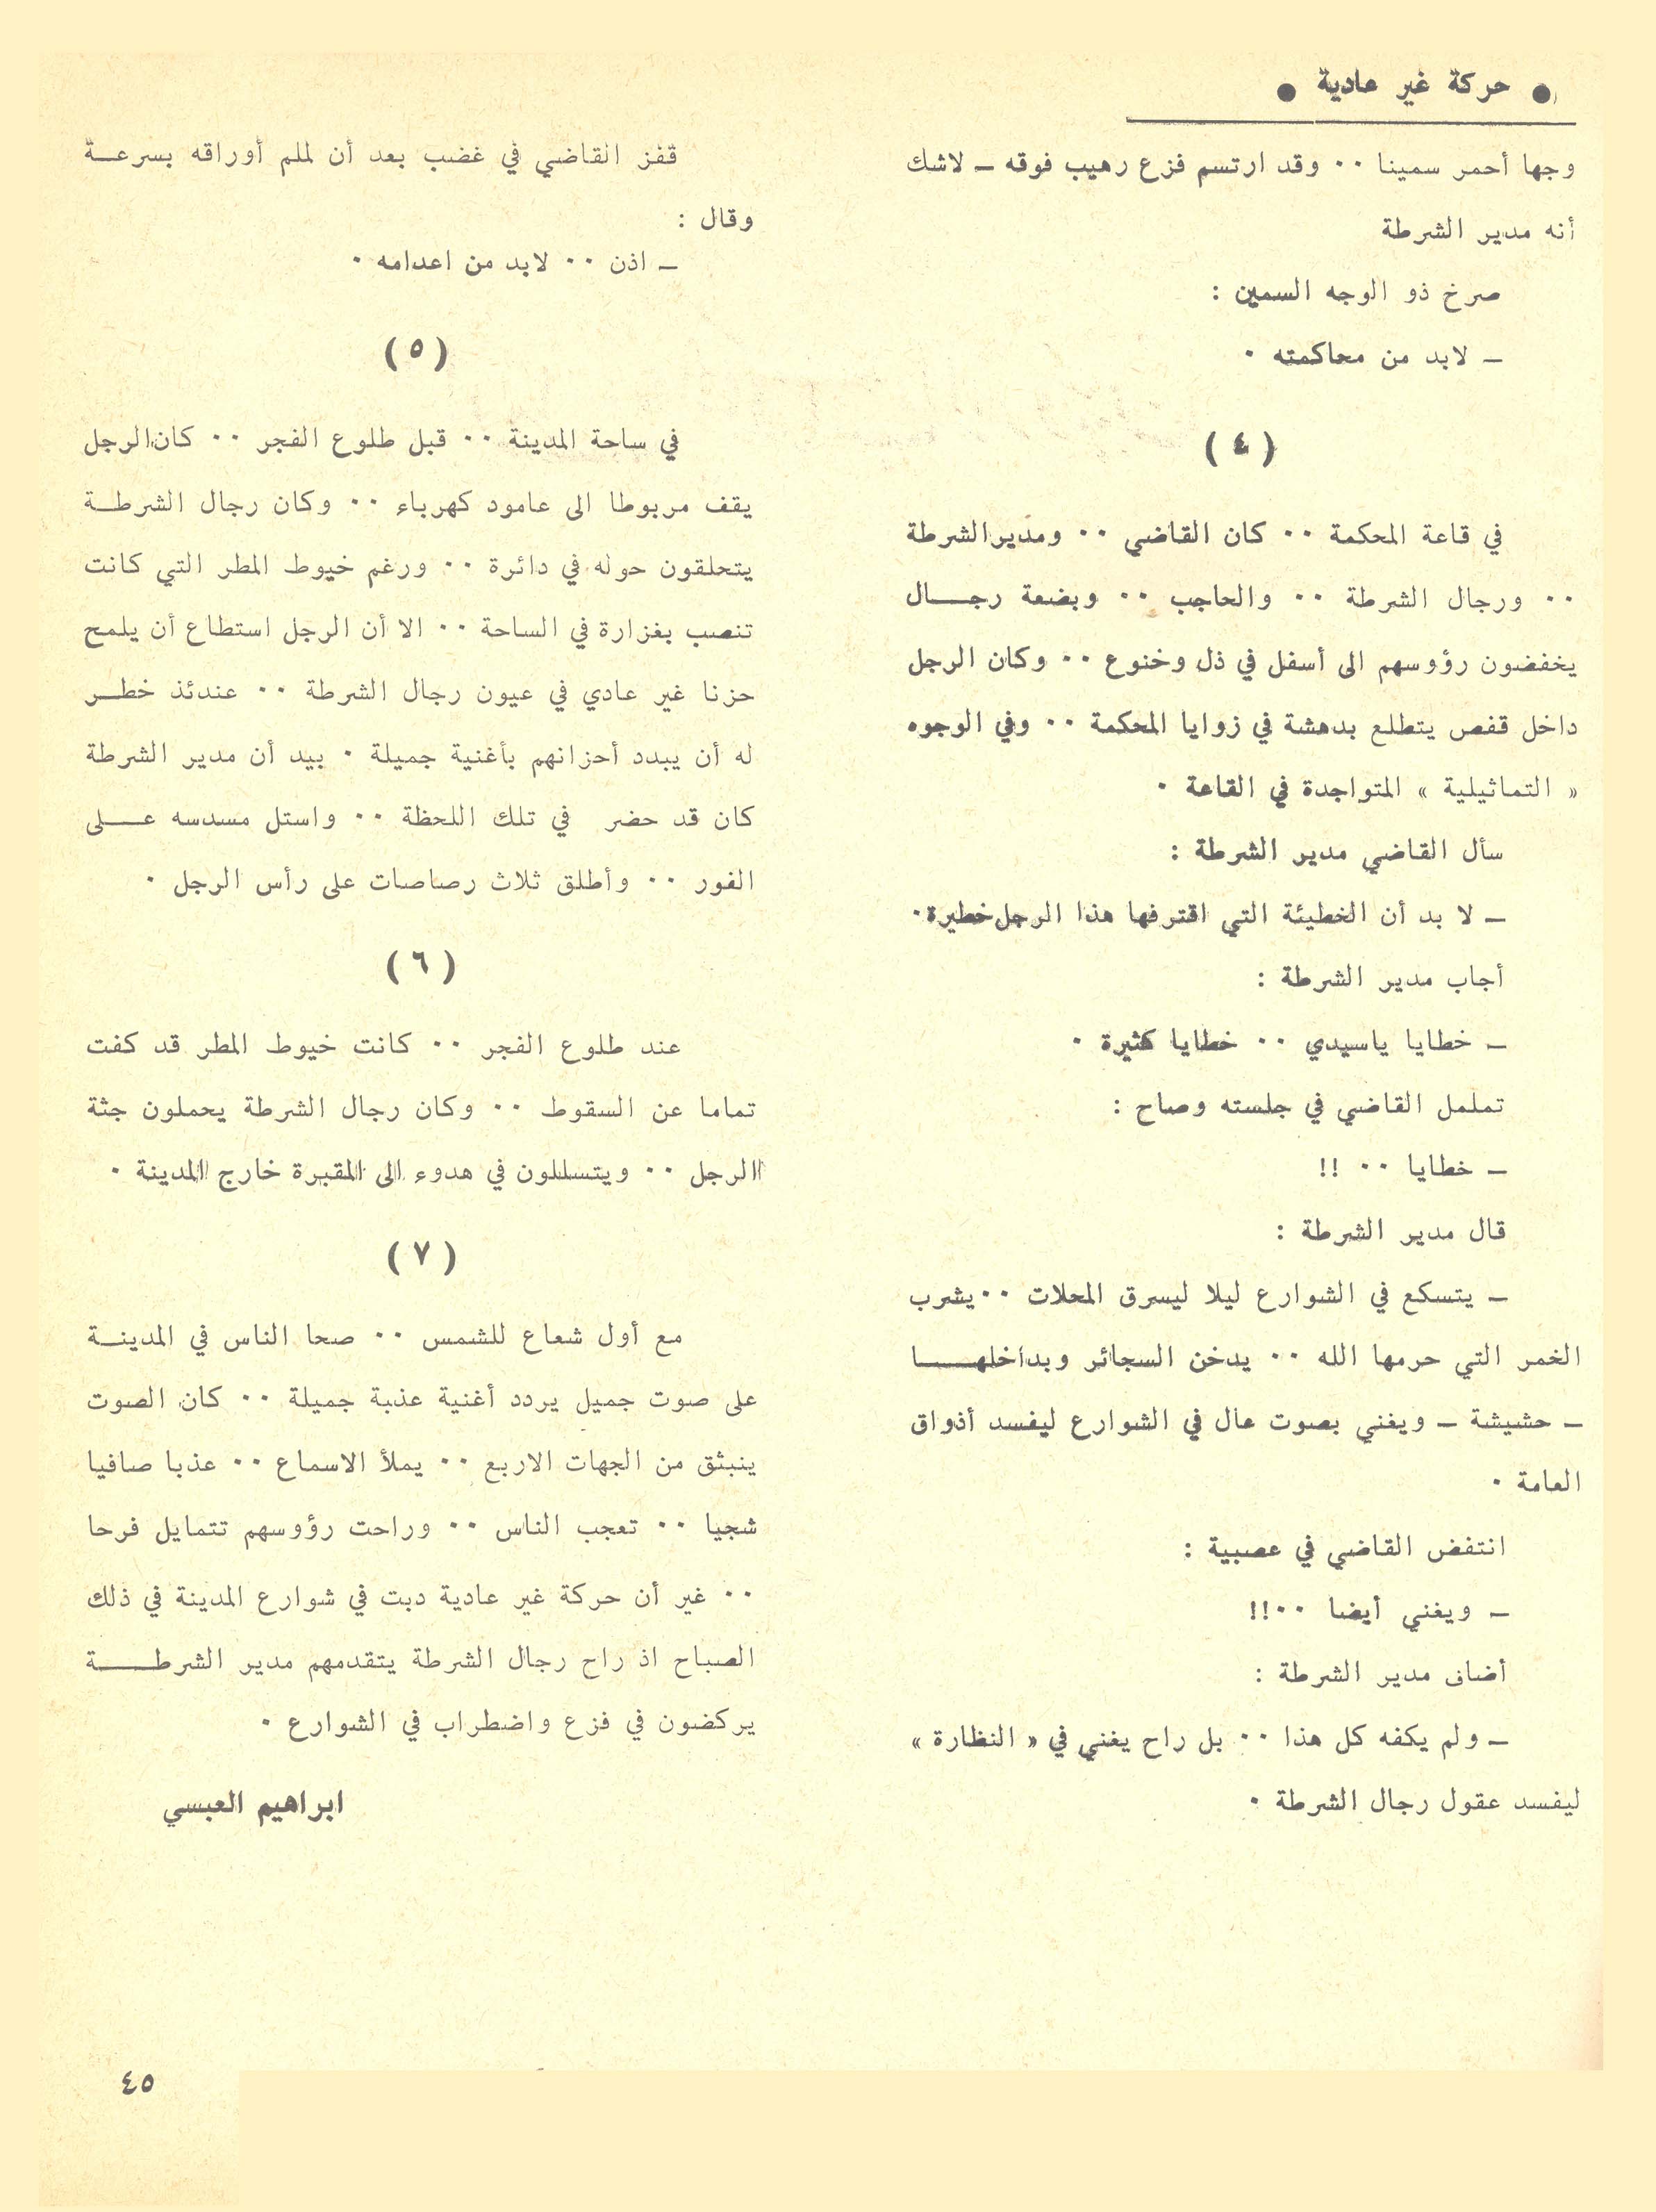 ● حركة غير عادية ●
وجها أحمر سمينا ٠٠ وقد ارتسم فزع رهيب فوقه ــ لاشك
أنه مدير الشرطة
صرخ ذو الوجه السمين :
ــ لابد من محاكمته ٠
( ٤ )
في قاعة المحكمة ٠٠ كان القاضي ٠٠ ومدير الشرطة
٠٠ ورجال الشرطة ٠٠ والحاجب ٠٠ وبضعة رجــال
يخفضون رؤوسهم الى أسفل في ذل وخنوع ٠٠ وكان الرجل
داخل قفص يتطلع بدهشة في زوايا المحكمة ٠٠ وفي الوجوه
« التماثيلية » المتواجدة في القاعة ٠
سأل القاضي مدير الشرطة :
ــ لا بد أن الخطيئة التي اقترفها هذا الرجل خطيرة٠
أجاب مدير الشرطة :
ــ خطايا ياسيدي ٠٠ خطايا كثيرة ٠
تململ القاضي في جلسته وصاح :
ــ خطايا ٠٠ !!
قال مدير الشرطة :
ــ يتسكع في الشوارع ليلا ليسرق المحلات ٠٠ يشرب
الخمر التي حرمها الله ٠٠ يدخن السجائر وبداخلهــا
ــ حشيشة ــ ويغني بصوت عال في الشوارع ليفسد أذواق
العامة ٠
انتفض القاضي في عصبية :
ــ ويغني أيضا ٠٠!!
أضاف مدير الشرطة :
ــ ولم يكفه كل هذا ٠٠ بل راح يغني في « النظارة »
ليفسد عقول رجال الشرطة ٠
قفز القاضي في غضب بعد أن لملم أوراقه بسرعــة
وقال :
ــ اذن ٠٠ لابد من اعدامه ٠
( ٥ )
في ساحة المدينة ٠٠ قبل طلوع الفجر ٠٠ كان الرجل
يقف مربوطا الى عامود كهرباء ٠٠ وكان رجال الشرطــة
يتحلقون حوله في دائرة ٠٠ ورغم خيوط المطر التي كانت
تنصب بغزارة في الساحة ٠٠ الا أن الرجل استطاع أن يلمح
حزنا غير عادي في عيون رجال الشرطة ٠٠ عندئذ خطــر
له أن يبدد أحزانهم بأغنية جميلة ٠ بيد أن مدير الشرطة
كان قد حضر في تلك اللحظة ٠٠ واستل مسدسه عــلى
الفور ٠٠ وأطلق ثلاث رصاصات على رأس الرجل ٠
( ٦ )
عند طلوع الفجر ٠٠ كانت خيوط المطر قد كفت
تماما عن السقوط ٠٠ وكان رجال الشرطة يحملون جثة
الرجل ٠٠ ويتسللون في هدوء الى المقبرة خارج المدينة ٠
( ٧ )
مع أول شعاع للشمس ٠٠ صحا الناس في المدينــة
على صوت جميل يردد أغنية عذبة جميلة ٠٠ كان الصوت
ينبثق من الجهات الاربع ٠٠ يملأ الاسماع ٠٠ عذبا صافيا
شجيا ٠٠ تعجب الناس ٠٠ وراحت رؤوسهم تتمايل فرحا
٠٠ غير أن حركة غير عادية دبت في شوارع المدينة في ذلك
الصباح اذ راح رجال الشرطة يتقدمهم مدير الشرطــة
يركضون في فزع واضطراب في الشوارع ٠
ابراهيم العبسي
٤٥